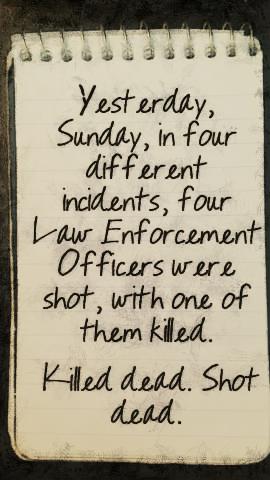 Yesterday,
Sunday, in four
different
incidents, four
Law Enforcement
Officers were
shot, with one of
them killed.
Killed dead. Shot
dead.